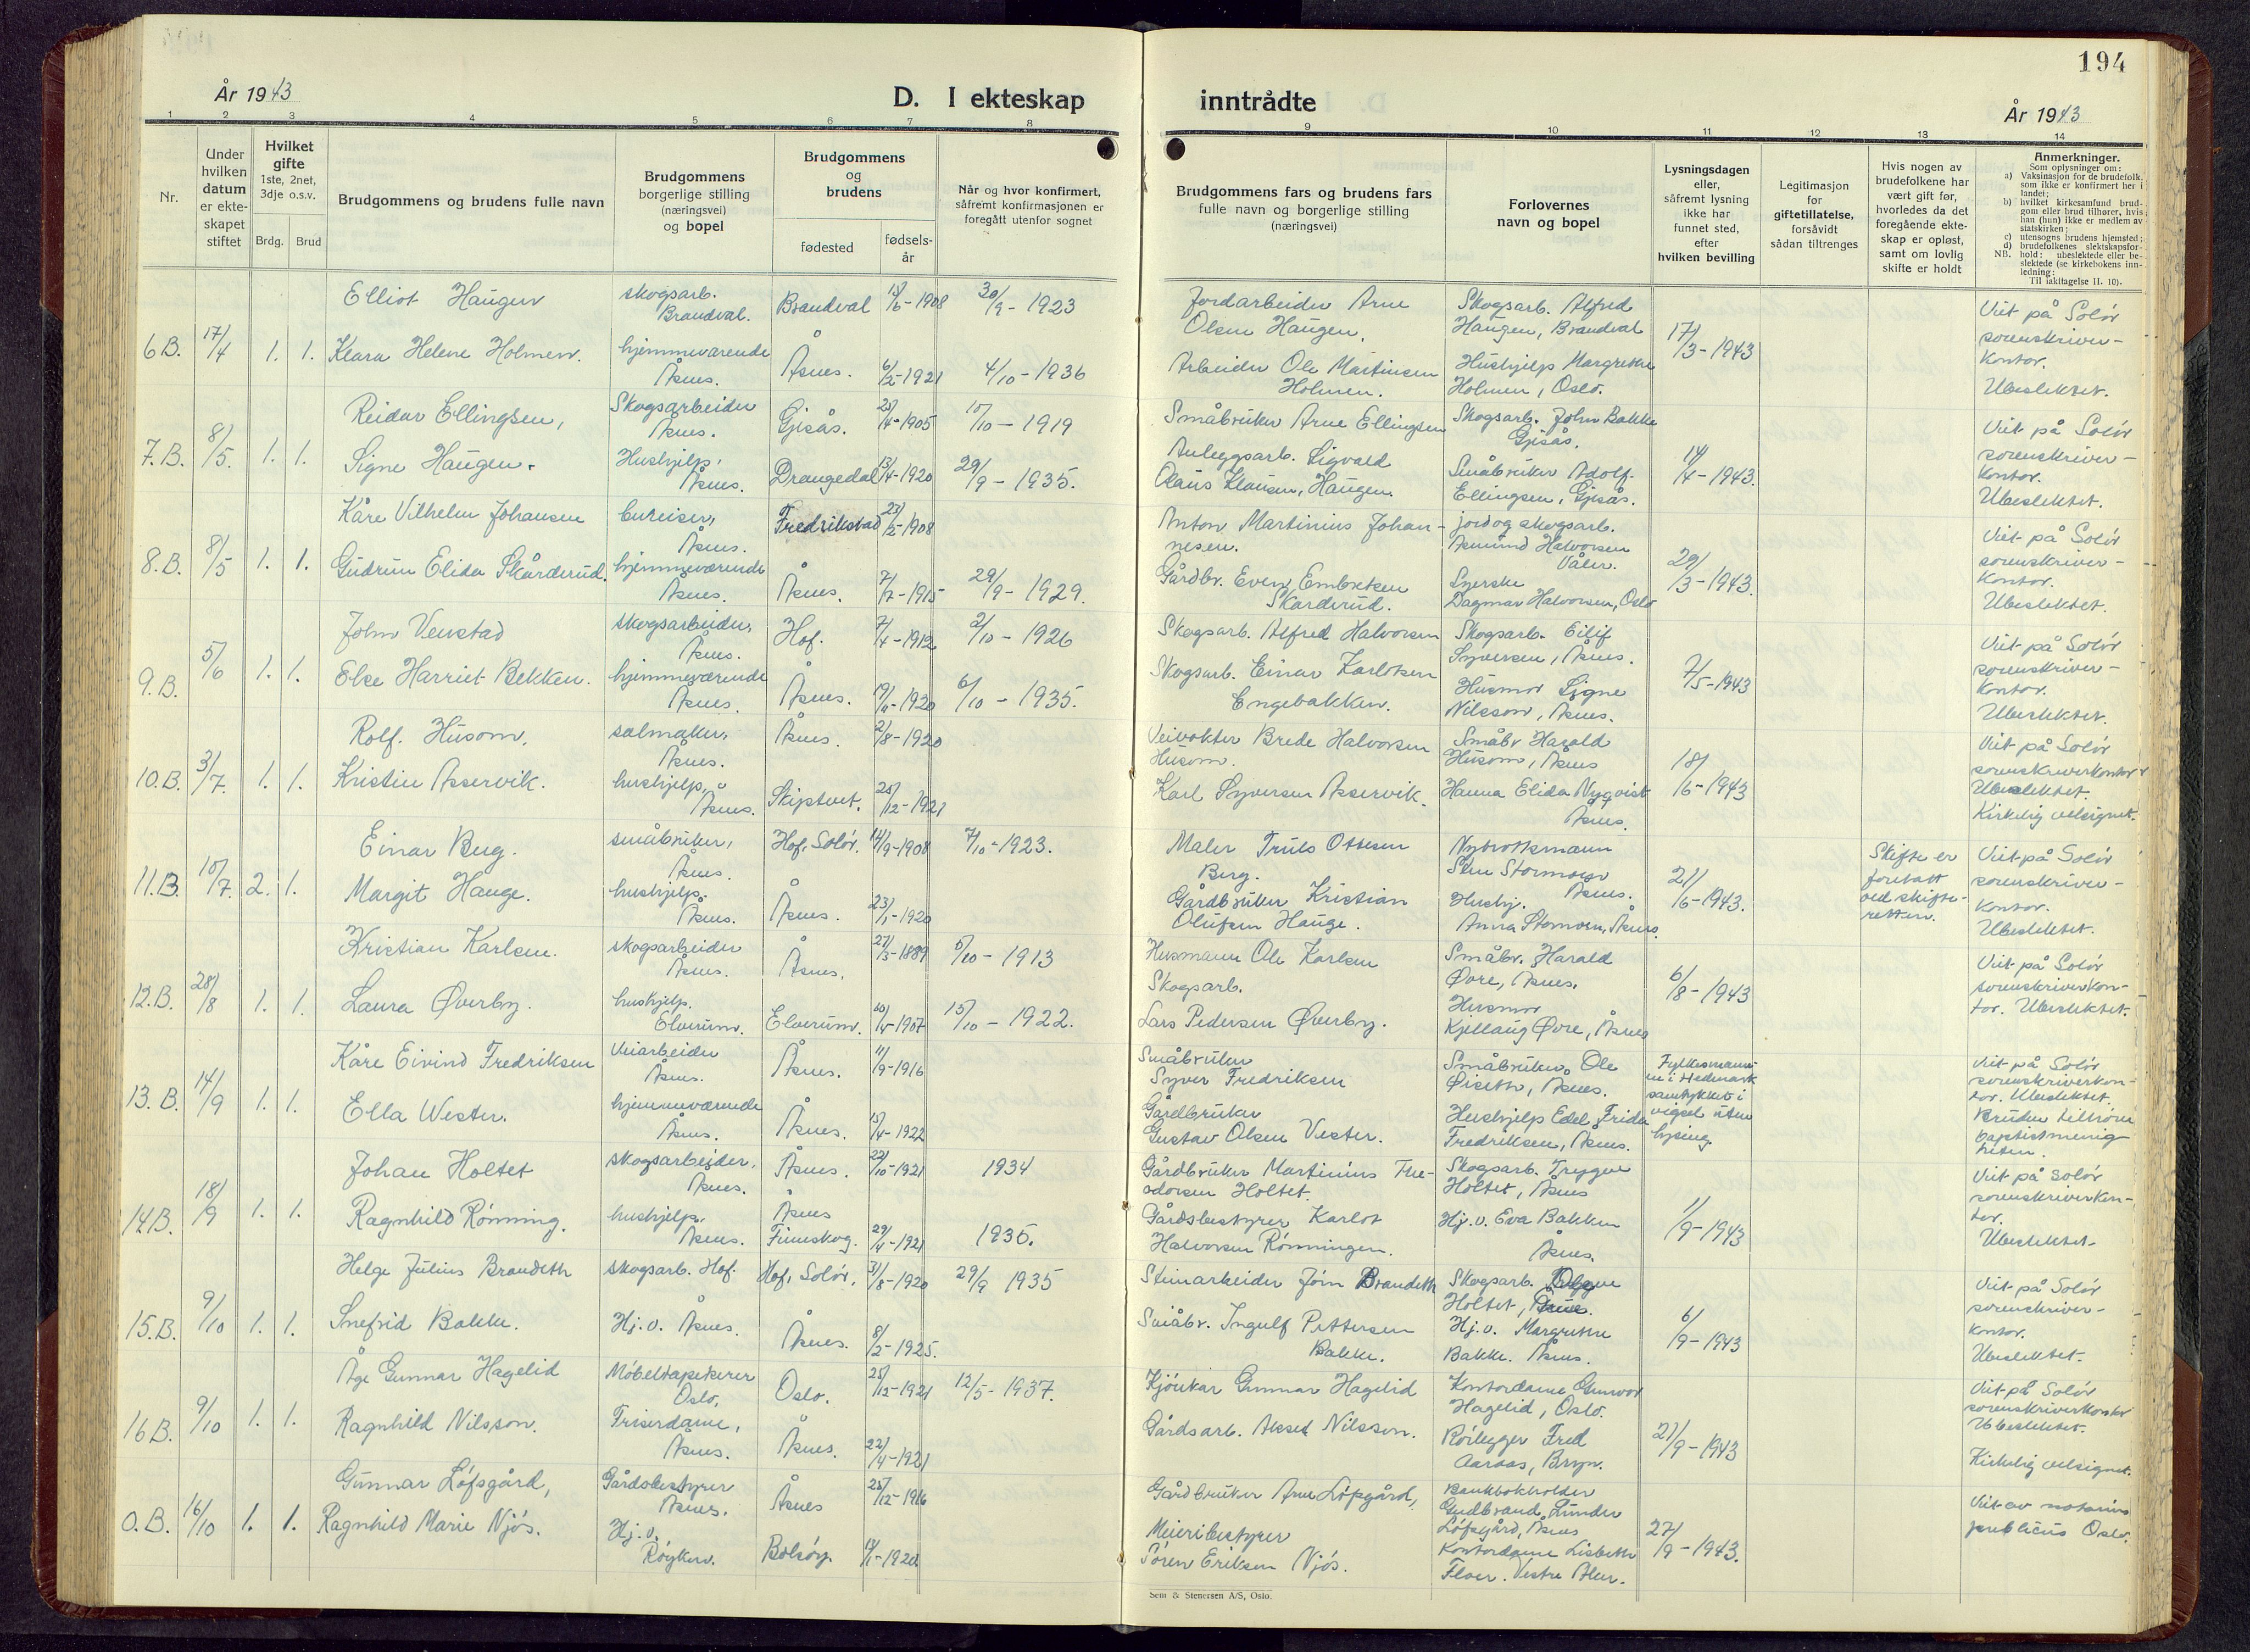 194
År 1943
D. I ekteskap inntrådte
År 1943
1 2 3 4 5 6 7 8 9 10 11 12 13 14
Nr.
Under hvilken datum er ekte-skapet stiftet
Hvilket gifte 1ste, 2net, 3dje o.s.v.
Brdg. Brud
Brudgommens og brudens fulle navn
Brudgommens borgerlige stilling (næringsvei) og bopel
Brudgommens og brudens
fødested
fødsels-år
Når og hvor konfirmert, såfremt konfirmasjonen er foregått utenfor sognet
Brudgommens fars og brudens fars fulle navn og borgerlige stilling (næringsvei)
Forlovernes navn og bopel
Lysningsdagen eller, såfremt lysning ikke har funnet sted, efter hvilken bevilling
Legitimasjon for giftetillatelse, forsåvidt sådan tiltrenges
Hvis nogen av brudefolkene har vært gift før, hvorledes da det foregående ekte-skap er opløst, samt om lovlig skifte er holdt
Anmerkninger.
Som oplysninger om:
a) Vaksinasjon for de brudefolk, som ikke er konfirmert her i landet;
b) hvilket kirkesamfund brud-gom eller brud tilhører, hvis han (hun) ikke er medlem av statskirken;
c) utensogns brudens hjemsted;
d) brudefolkenes slektskapsfor-hold: ubeslektede eller be-slektede (se kirkebokens inn-ledning:
NB.
Til iakttagelse II. 10).
6B. 17/4 1. 1.
Elliot Haugen skogsarb. Brandval. Brandval 30/9-1923
Klara Helene Holmen. hjemmeværende Åsnes. Åsnes. 6/2-1921 4/10-1936
Jordarbeider Arne Olsen Haugen.
Arbeider Ole Martinsen Holmen.
Skogsarb. Alfred Haugen, Brandval
Hushjelp Margrethe Holmen, Oslo.
17/3-1943
Viet på Solør sorenskriver-kontor. Ubeslektet.
7.B. 8/5. 1. 1.
Reidar Ellingsen, Skogsarbeider Åsnes. Gjesås. 1905 1919
Signe Haugen. Hushjelp, Åsnes. Drangedal 1920 29/9-1935.
Småbruker Arne Ellingsen
Anleggsarb. Sigvald Olaus Klausen, Haugen.
Skogsarb. John Bakke Gjesås.
Småbruker Adolf Ellingsen, Gjesås.
14/4-1943.
Viet på Solør sorenskriver-kontor. Ubeslektet.
8.B. 8/5 1. 1.
Kåre Vilhelm Johansen bureiser, Åsnes. Fredrikstad 23/2-1908
Gudrun Elida Skårderud. hjemmeværende Åsnes. Åsnes. 1915 29/9-1929.
Anton Martinius Johan-nesen.
Gårdbr. Even Embretsen Skårderud.
jord og skogsarb. Åsmund Halvorsen Våler.
Syerske Dagmar Halvorsen, Oslo
29/3-1943.
Viet på Solør sorenskriver-kontor. Ubeslektet.
9.B. 5/6 1. 1.
John Venstad skogsarbeider, Åsnes. Hof. 7/4-1912 2/10-1926
Else Harriet Bekken. hjemmeværende Åsnes. Åsnes. 1920 6/10-1935.
Skogsarb. Alfred Halvorsen
Skogsarb. Einar Karlsen Engebakken.
Skogsarb. Eilif Syversen, Åsnes.
Husmor Signe Nilsson, Åsnes.
7/5-1943
Viet på Solør sorenskriver-kontor. Ubeslektet.
10.B. 3/7. 1. 1.
Rolf. Husom, salmaker, Åsnes. Åsnes. 2/8-1920
Kristine Asservik. hushjelp, Åsnes. Skiptvet. 1921
Veivokter Brede Halvorsen Husom.
Karl Syversen Asservik.
Småbr Harald Husom, Åsnes
Hanna Elida Nyqvist Åsnes.
18/6-1943
Viet på Solør sorenskriverkontor Ubeslektet. Kirkelig velsignet.
11.B. 10/7. 2. 1.
Einar Berg. småbruker, Åsnes. Hof, Solør. 14/9-1908 7/10-1923.
Margit Hauge. hushjelp. Åsnes. Åsnes. 23/1-1920
Maler Truls Ottesen Berg.
Gårdbruker Kristian Olufsen Hauge.
Nybrottsmann Sten Stormoen Åsnes.
Hushj. Anna Stomoen, Åsnes.
21/6-1943.
Skifte er foretatt ved skifte-retten.
Viet på Solør sorenskriver-kontor. Ubeslektet.
12.B. 28/8 1. 1.
Kristian Karlsen. skogsarbeider Åsnes. Åsnes. 27/3-1889 5/10-1913
Laura Øverby. hushjelp. Elverum. Elverum. 1907 15/10-1922.
Husmann Ole Karlsen Skogsarb.
Lars Pedersen Øverby.
Småbr. Harald Øvre, Åsnes.
Husmor Kjellaug Øvre, Åsnes
6/8-1943
Viet på Solør sorenskriverkon-tor. Ubeslektet.
13. B. 14/9 1. 1.
Kåre Eivind Fredriksen Veiarbeider Åsnes. Åsnes. 11/9-1916
Ella Wester. hjemmeværende Åsnes. Åsnes. 1922
Småbruker Syver Fredriksen
Gårdbruker Gustav Olsen Vester.
Småbruker Ole Øiseth, Åsnes.
Hushjelp Edel Frida Fredriksen, Åsnes.
Fylkesmann-en i Hedmark samtykket i vigsel uten lysing.
Viet på Solør sorenskriverkon-tor. Ubeslektet. Bruden tilhører baptistmenig-heten.
14B. 18/9 1. 1.
Johan Holtet skogsarbeider, Åsnes. Åsnes. 22/10-1921 1934
Ragnhild Rönning. hushjelp. Åsnes. Åsnes Finnskog. 29/4-1921 1935.
Gårdbruker Martinius The-odorsen Holtet.
Gårdsbestyrer Karlot Halvorsen Rönningen.
Skogsarb. Trygve Holtet, Åsnes
Hj.v. Eva Bakken Åsnes.
1/9-1943
Viet på Solør sorenskriverkon-tor. Ubeslektet.
15.B. 9/10 1. 1.
Helge Julius Brandeth skogsarb. Hof. Hof, Solør. 31/8-1920 29/9 1935
Snefrid Bakke. Hj.v. Åsnes. Åsnes. 8/2-1925.
Stenarbeider Jörn Brandeth
Småbr. Ingulf Pettersen Bakke.
Skogsarb. Holtet,
Hj.v. Margrethe Bakke. Åsnes.
6/9-1943
Viet på Solør sorenskriver-kontor. Ubeslektet.
16B. 9/10 1. 1.
Åge Gunnar Hagelid Møbeltapetserer Oslo, Oslo. 25/12-1921 12/5-1937.
Ragnhild Nilsson. Friserdame, Åsnes. Åsnes. 22/4-1921
Kjöusk­ar Gunnar Hagelid
Gårdsarb. Aksel Nilsson.
Kontordame Gunvor Hagelid, Oslo.
Rörlegger Fred Aaraas, Bryn.
21/9-1943
Viet på Solør sorenskriverkontor Ubeslektet. Kirkelig velsignet.
0.B. 16/10 1. 1.
Gunnar Löfsgård, Gårdsbestyrer Åsnes. Åsnes 1916
Ragnhild Marie Njös. Hj.v. Røyken. Bolsøy. 1920
Gårdbruker Arne Löfsgård,
Meieribestyrer Sören Eriksen Njös.
Bankbokholder Gudbrand Lunder Löfsgård, Åsnes
Kontordame Lisbeth Floer. Vestre Aker.
27/9-1943.
Viet av notarius publicus Oslo.
Sem & Stenersen A/S, Oslo.